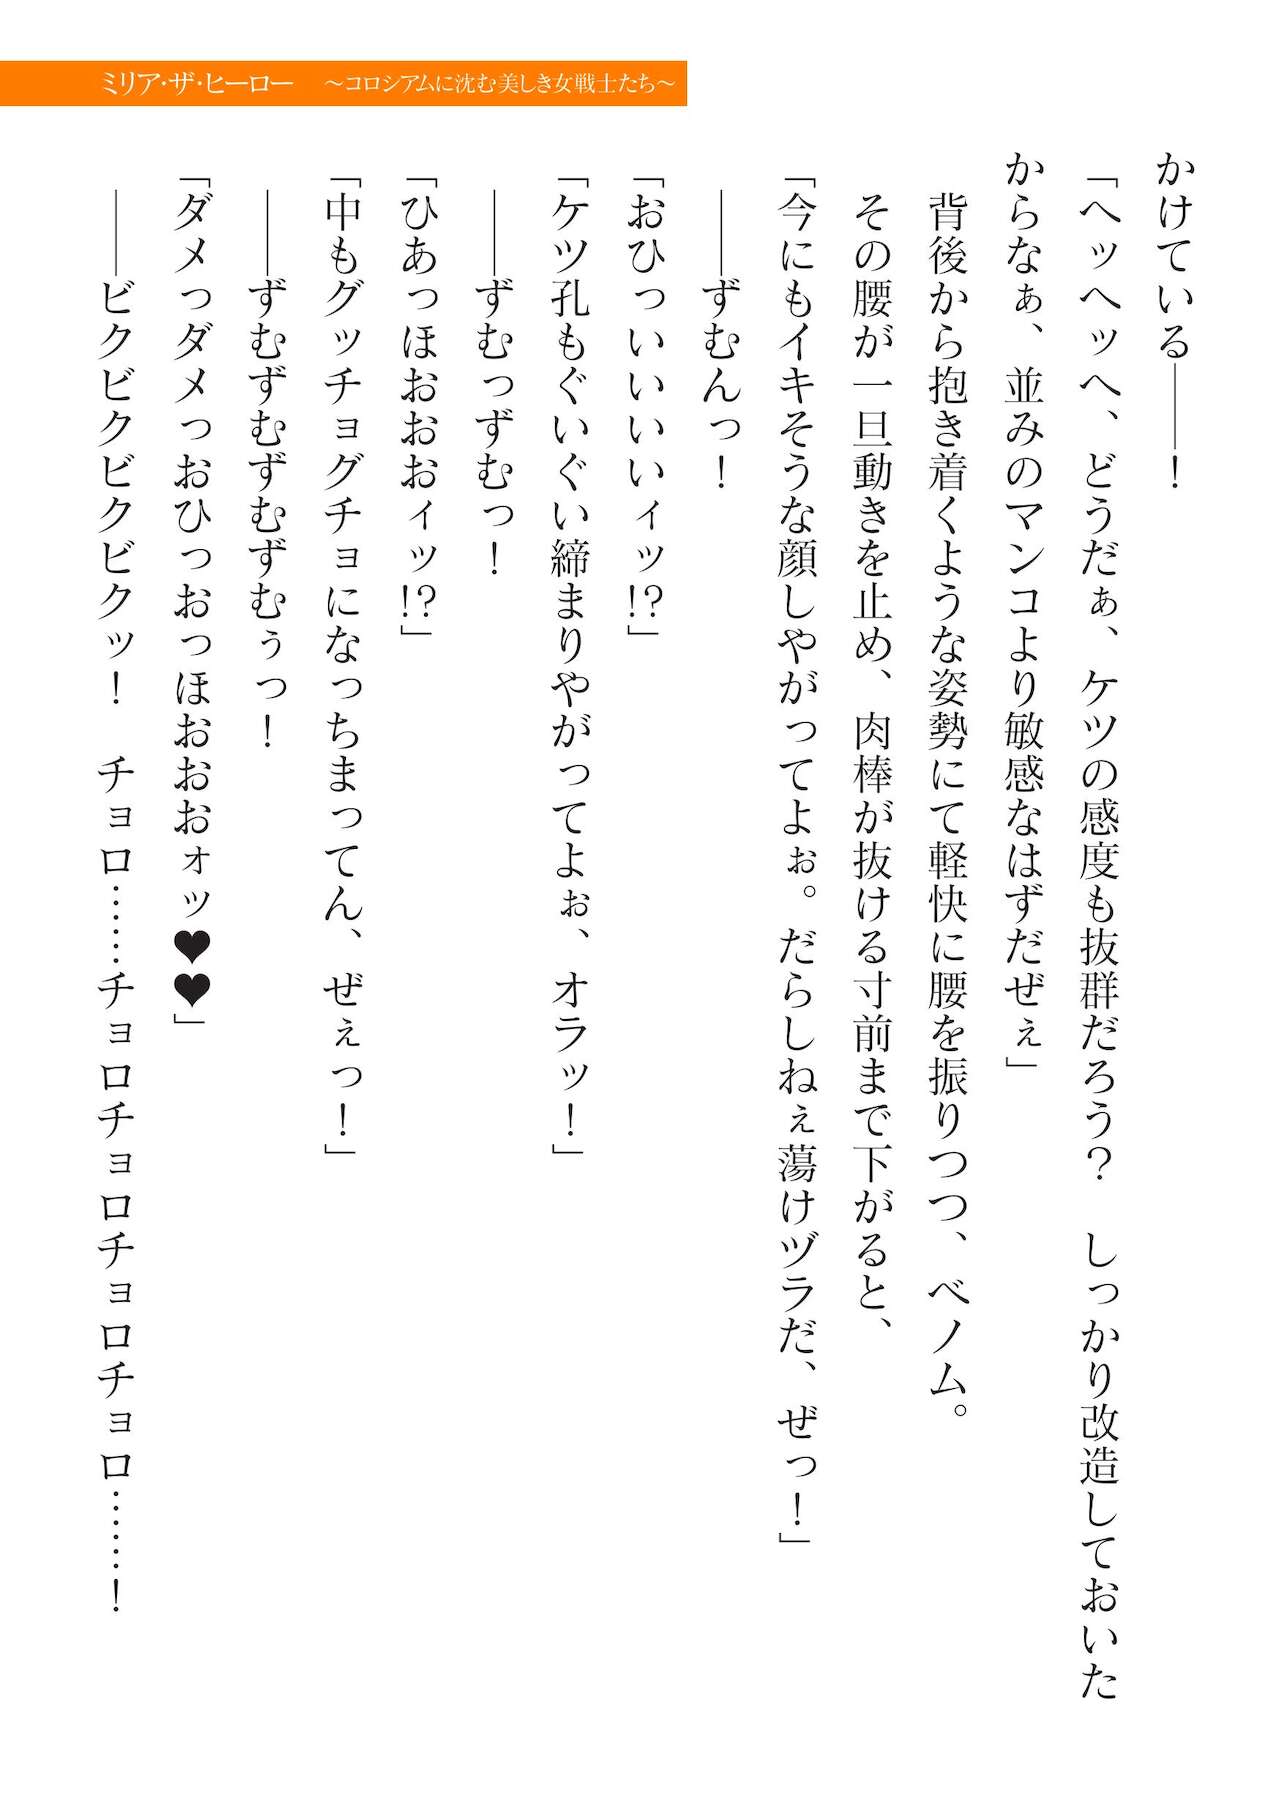 ミリア・ザ・ヒーロー　～コロシアムに沈む美しき女戦士たち～
かけている――！
「ヘッヘッヘ、どうだぁ、ケツの感度も抜群だろう？　しっかり改造しておいた
からなぁ、並みのマンコより敏感なはずだぜぇ」
　背後から抱き着くような姿勢にて軽快に腰を振りつつ、ベノム。
　その腰が一旦動きを止め、肉棒が抜ける寸前まで下がると、
「今にもイキそうな顔しやがってよぉ。だらしねぇ蕩けヅラだ、ぜっ！」
　――ずむんっ！
「おひっいいいいィッ!?」
「ケツ孔もぐいぐい締まりやがってよぉ、オラッ！」
　――ずむっずむっ！
「ひあっほおおおィッ!?」
「中もグッチョグチョになっちまってん、ぜぇっ！」
　――ずむずむずむずむぅっ！
「ダメっダメっおひっおっほおおおォッ♥♥」
　――ビクビクビクビクッ！　チョロ……チョロチョロチョロチョロ……！